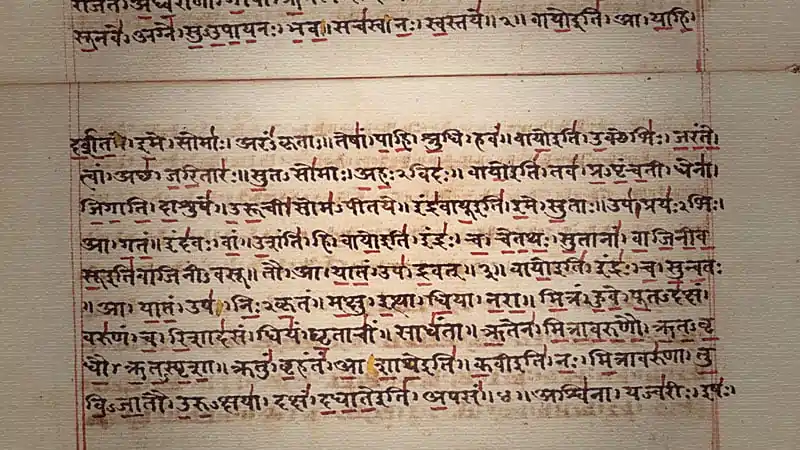 सूनवे। अग्ने। सुऽउपायनः। भव। सचस्व। नः। स्वस्तये॥२॥ वायोइति। आ। याहि।
दर्शत। इमे। सोमाः। अरंऽकृताः॥ तेषां। पाहि। श्रुधि। हवं॥ वायोइति। उक्थेभिः। जरंते।
त्वां। अच्छ। जरितारः॥ सुतऽसोमाः। अहःऽविदः॥ वायोइति। तव। प्रऽपृंचती। धेना।
जिगाति। दाशुषे॥ उरूची। सोमऽपीतये॥ इंद्रवायूइति। इमे। सुताः॥ उप। प्रयःऽभिः।
आ। गतं। इंदवः। वां। उशंति। हि। वायोइति। इंद्रः। च। चेतथः। सुतानां। वाजिनीव
सूइतिवाजिनीऽवसू॥ तौ। आ। यातं। उप। द्रवत्॥३॥ वायोइति। इंद्रः। च। सुन्वतः
॥ आ। यातं। उप। निःऽकृतं॥ मक्षु। इत्था। धिया। नरा॥ मित्रं। हुवे। पूतऽदक्षं।
वरुणं। च। रिशादसं। धियं। घृताचीं। साधंता॥ ऋतेन। मित्रावरुणौ। ऋतऽवृ
धौ। ऋतऽस्पृशा॥ क्रतुं। बृहंतं। आशाथेइति॥ कवीइति। नः। मित्रावरुणा। तु
विऽजातौ। उरुऽक्षया। दक्षं। दधातेइति। अपसं॥४॥ अश्विना। यज्वरीः। इषः।